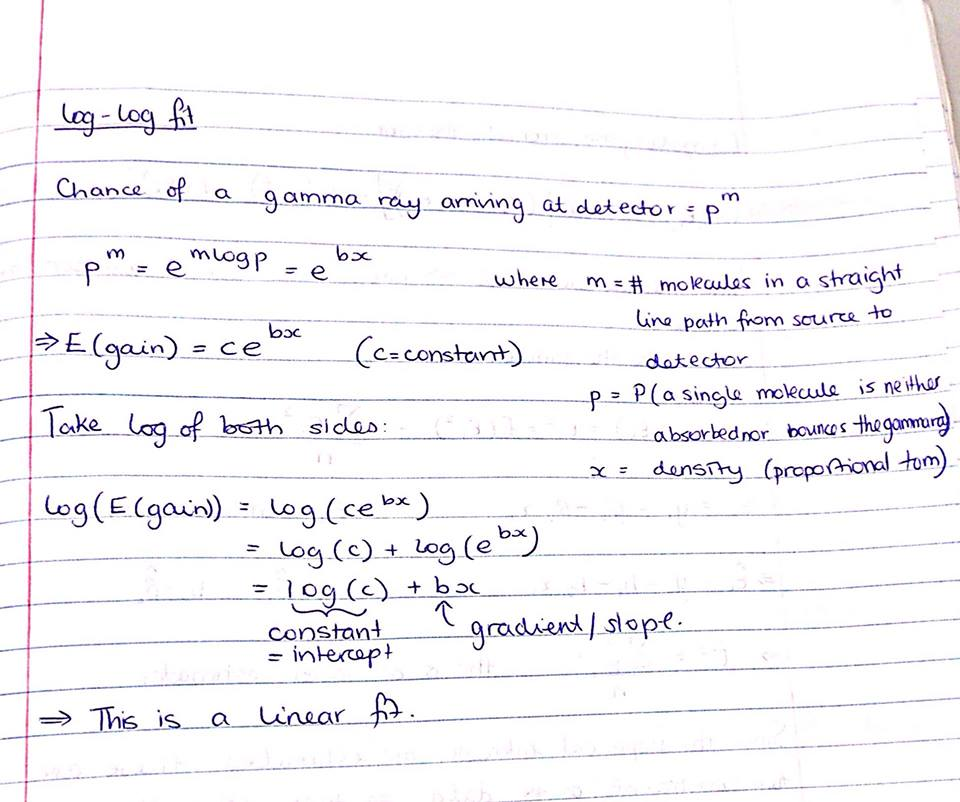 log-log fit
Chance of a gamma ray arriving at detector = p^m
p^m = e^{mlogp} = e^{bx}
where m = # molecules in a straight
line path from source to
detector
p = P(a single molecule is neither
absorbed nor bounces the gammaray)
x = density (proportional to m)
⇒ E(gain) = ce^{bx} (c=constant)
Take log of both sides:
log(E(gain)) = log(ce^{bx})
= log(c) + log(e^{bx})
= log(c) + bx
constant
= intercept
↑ gradient/slope.
⇒ This is a linear fit.